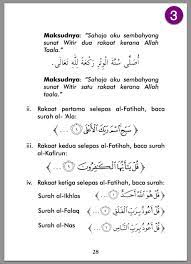 3
Maksudnya: "Sahaja aku sembahyang
sunat Witir dua rakaat kerana Allah
Taala."
أُصَلِّى سُنَّةَ الْوِتْرِ رَكْعَةً لِلَّهِ تَعَالَى.
Maksudnya: "Sahaja aku sembahyang
sunat Witir satu rakaat kerana Allah
Taala."
ii. Rakaat pertama selepas al-Fatihah, baca
surah al-'Ala:
﴿ سَبِّحِ اسْمَ رَبِّكَ الْأَعْلَى ۝١ ... ﴾
iii. Rakaat kedua selepas al-Fatihah, baca surah
al-Kafirun:
﴿ قُلْ يَا أَيُّهَا الْكَافِرُونَ ۝١ ... ﴾
iv. Rakaat ketiga selepas al-Fatihah, baca surah:
Surah al-Ikhlas ﴿ قُلْ هُوَ اللَّهُ أَحَدٌ ۝١ ... ﴾
Surah al-Falaq ﴿ قُلْ أَعُوذُ بِرَبِّ الْفَلَقِ ۝١ ... ﴾
Surah al-Nas ﴿ قُلْ أَعُوذُ بِرَبِّ النَّاسِ ۝١ ... ﴾
28